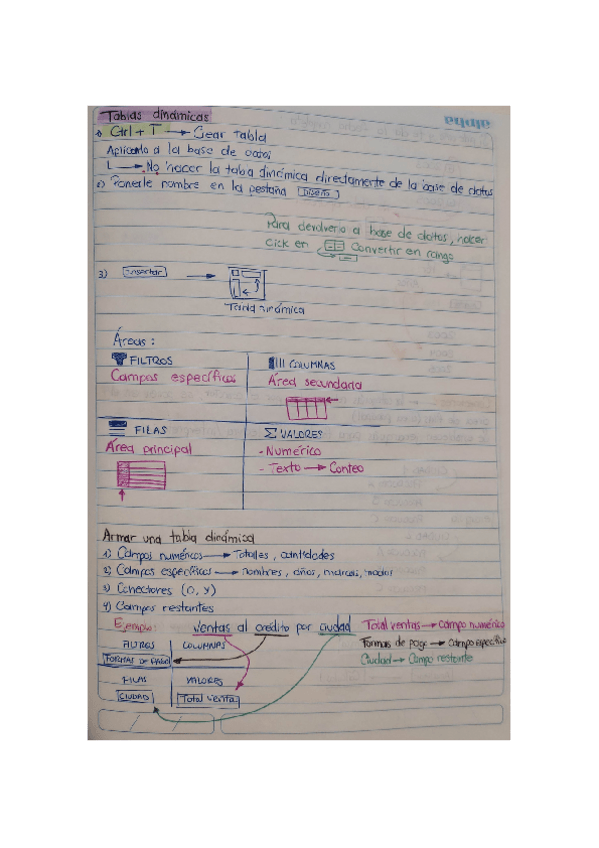 Tablas dinámicas
1) Ctrl + T → Crear tabla
Aplicarlo a la base de datos
L → No hacer la tabla dinámica directamente de la base de datos
2) Ponerle nombre en la pestaña Diseño
Para devolverlo a base de datos, hacer
click en Convertir en rango
3) Insertar →
Tabla dinámica
Áreas:
FILTROS
Campos específicos
COLUMNAS
Área secundaria
FILAS
Área principal
Σ VALORES
- Numérico
- Texto → Conteo
Armar una tabla dinámica
1) Campos numéricos → Totales, cantidades
2) Campos específicos → nombres, años, marcas, modos
3) Conectores (o, y)
4) Campos restantes
Ejemplo: Ventas al crédito por ciudad
Total ventas → campo numérico
Formas de pago → campo específico
Ciudad → Campo restante
FILTROS COLUMNAS
FORMAS DE PAGO
FILAS VALORES
CIUDAD Total venta